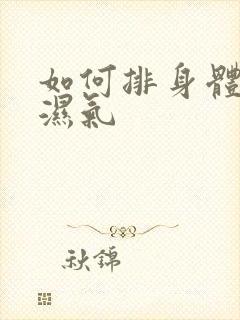 如何排身體
濕氣
秋錦